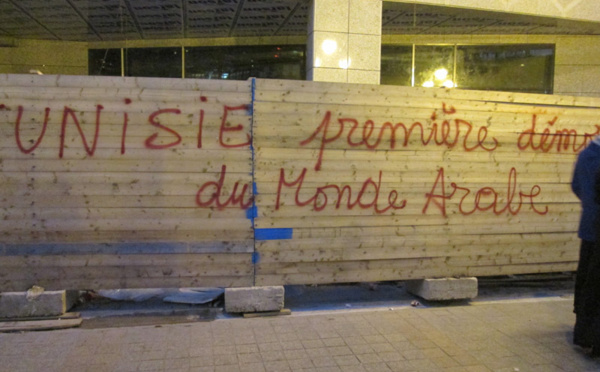 TUNISIE première démo
du Monde Arabe